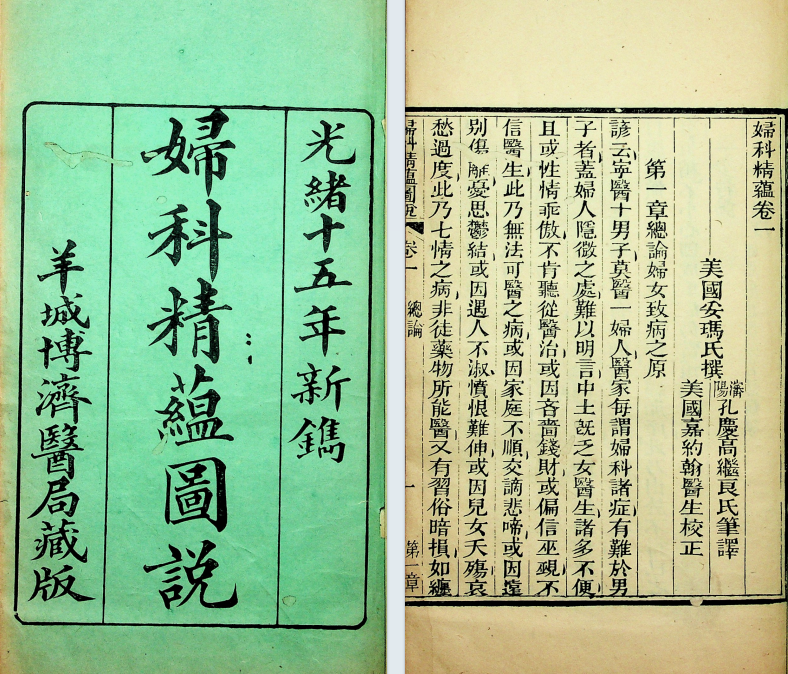 光緒十五年新鐫
婦科精藴圖説
羊城博濟醫局藏版
婦科精藴卷一
美國安瑪氏撰
瀋陽孔慶高繼良氏筆譯
美國嘉約翰醫生校正
第一章總論婦女致病之原
諺云寧醫十男子莫醫一婦人醫家每謂婦科諸症有難於男
子者蓋婦人隱微之處難以明言中土旣乏女醫生諸多不便
且或性情乖傲不肯聽從醫治或因吝嗇錢財或偏信巫覡不
信醫生此乃無法可醫之病或因家庭不順交謫悲啼或因遠
别傷離憂思鬱結或因遇人不淑憤恨難伸或因兒女夭殤哀
愁過度此乃七情之病非徒藥物所能醫又有習俗暗損如纏
婦科精藴圖說 卷一 總論 一 第一章